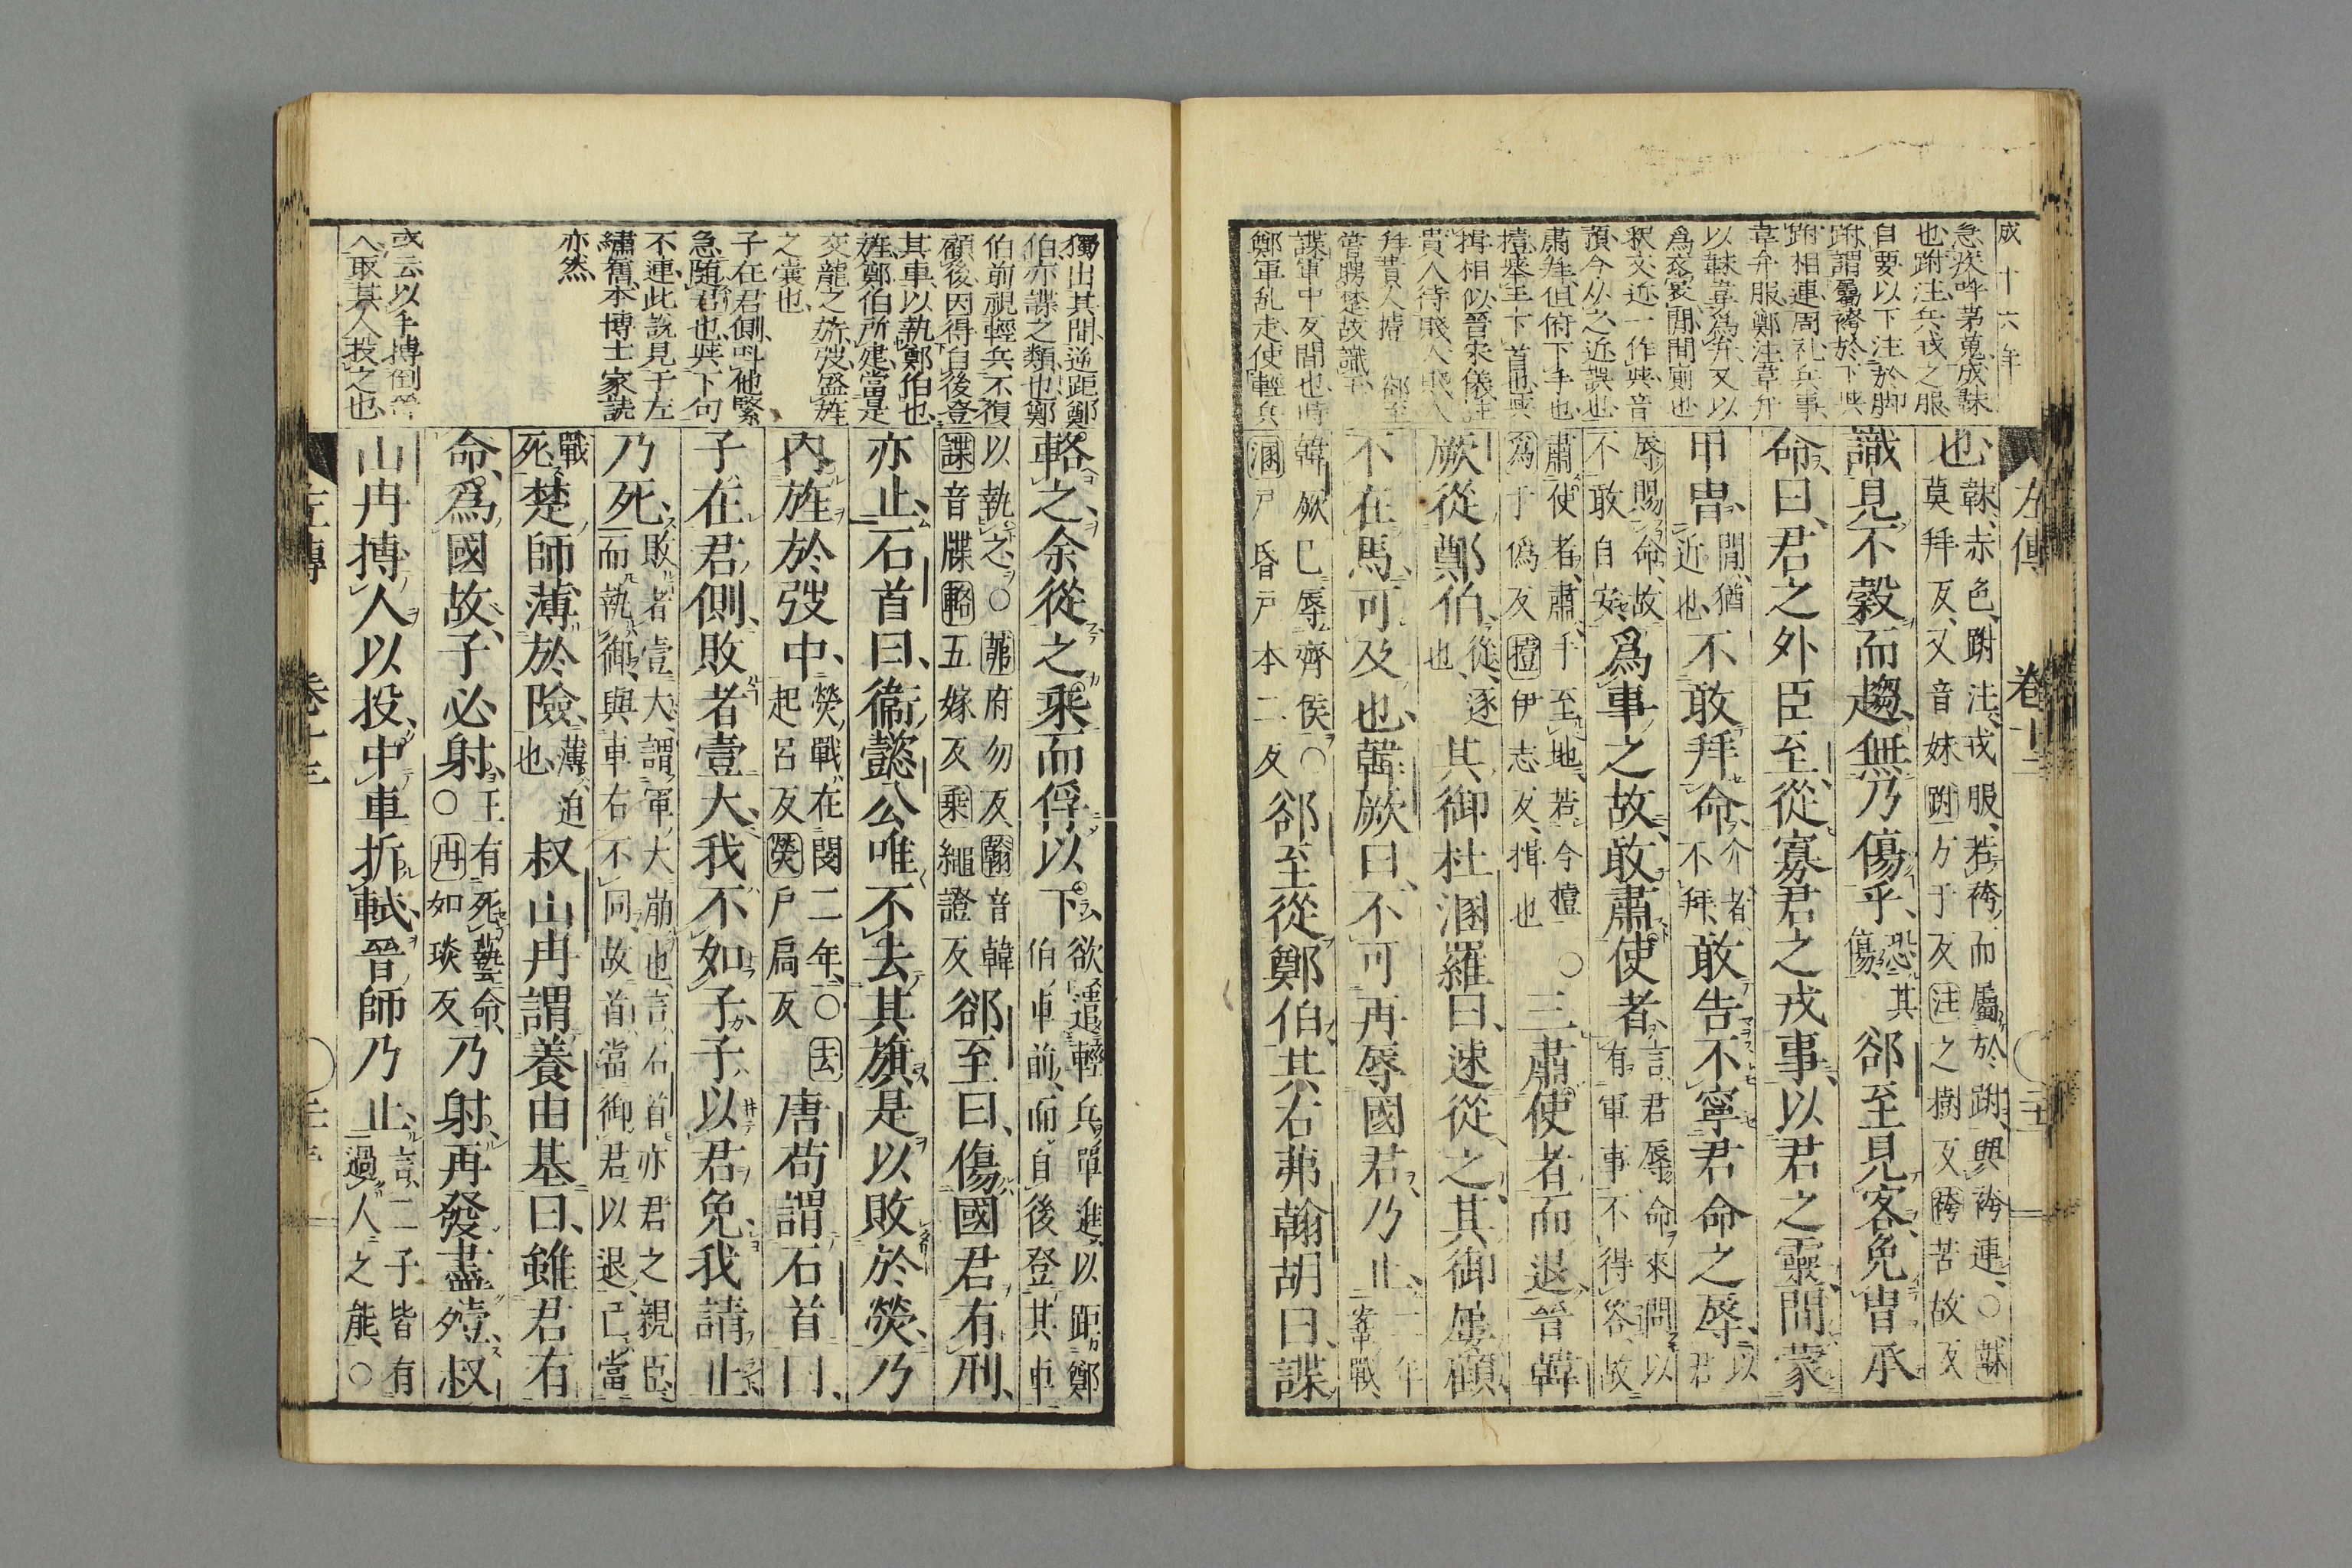 成十六年
急疾呼茅蒐成韎
也跗注兵戎之服
自要以下注於脚
跗謂屬袴於下與
跗相連周礼兵事
韋弁服鄭注韋弁
以韎韋為弁又以
為衣裳間間廁也
釈文近一作與音
預今从之近誤也
肅拜但俯下手也
擡舉至下首也與
揖相似晉宋儀注
貴人待賤人賤人
拜貴人揖 郤至
嘗聘楚故識乎
諜軍中反間也時
鄭軍乱走使輕兵
左傳 卷十三
也韎赤色跗注戎服若袴而屬於跗與袴連○韎莫拜反又音妹跗方于反注之樹反袴苦故反
識見不穀而趨無乃傷乎恐其傷郤至見客免冑承
命曰君之外臣至從寡君之戎事以君之靈間蒙
甲冑間猶近也不敢拜命介者不拜敢告不寧君命之辱以君
辱賜命故不敢自安爲事之故敢肅使者言君辱命來問以有軍事不得答故
肅使者肅手至地若今擡爲于偽反擡伊志反揖也○三肅使者而退晉韓
厥從鄭伯從逐也其御杜溷羅曰速從之其御屢顧
不在馬可及也韓厥曰不可再辱國君乃止二年鞌戰
韓厥已辱齊侯○溷戸昏戸本二反郤至從鄭伯其右茀翰胡曰諜
獨出其間逆距鄭
伯亦諜之類也鄭
伯前視輕兵不復
顧後因得自後登
其車以執鄭伯也
旌鄭伯所建當是
交龍之旂弢盛旌
之嚢也
子在君側呌他緊
急随君也與下句
不連此說見于左
繡舊本博士家読
亦然
或云以手搏倒晉
人取其人投之也
輅之余從之乘而俘以下欲遣輕兵單進以距鄭伯車前而自後登其車
以執之○茀府勿反翰音韓諜音牒輅五嫁反乘繩證反郤至曰傷國君有刑
亦止石首曰衞懿公唯不去其旗是以敗於熒乃
內旌於弢中熒戰在閔二年○去起呂反熒戸扃反唐苟謂石首曰
子在君側敗者壹大我不如子子以君免我請止
乃死敗者壹大謂軍大崩也言石首亦君之親臣而執御與車右不同故首當御君以退己當
戰死楚師薄於險薄迫也叔山冉謂養由基曰雖君有
命爲國故子必射王有死藝命○冉如琰反乃射再發盡殪叔
山冉搏人以投中車折軾晉師乃止言二子皆有過人之能○
左傳 卷十三